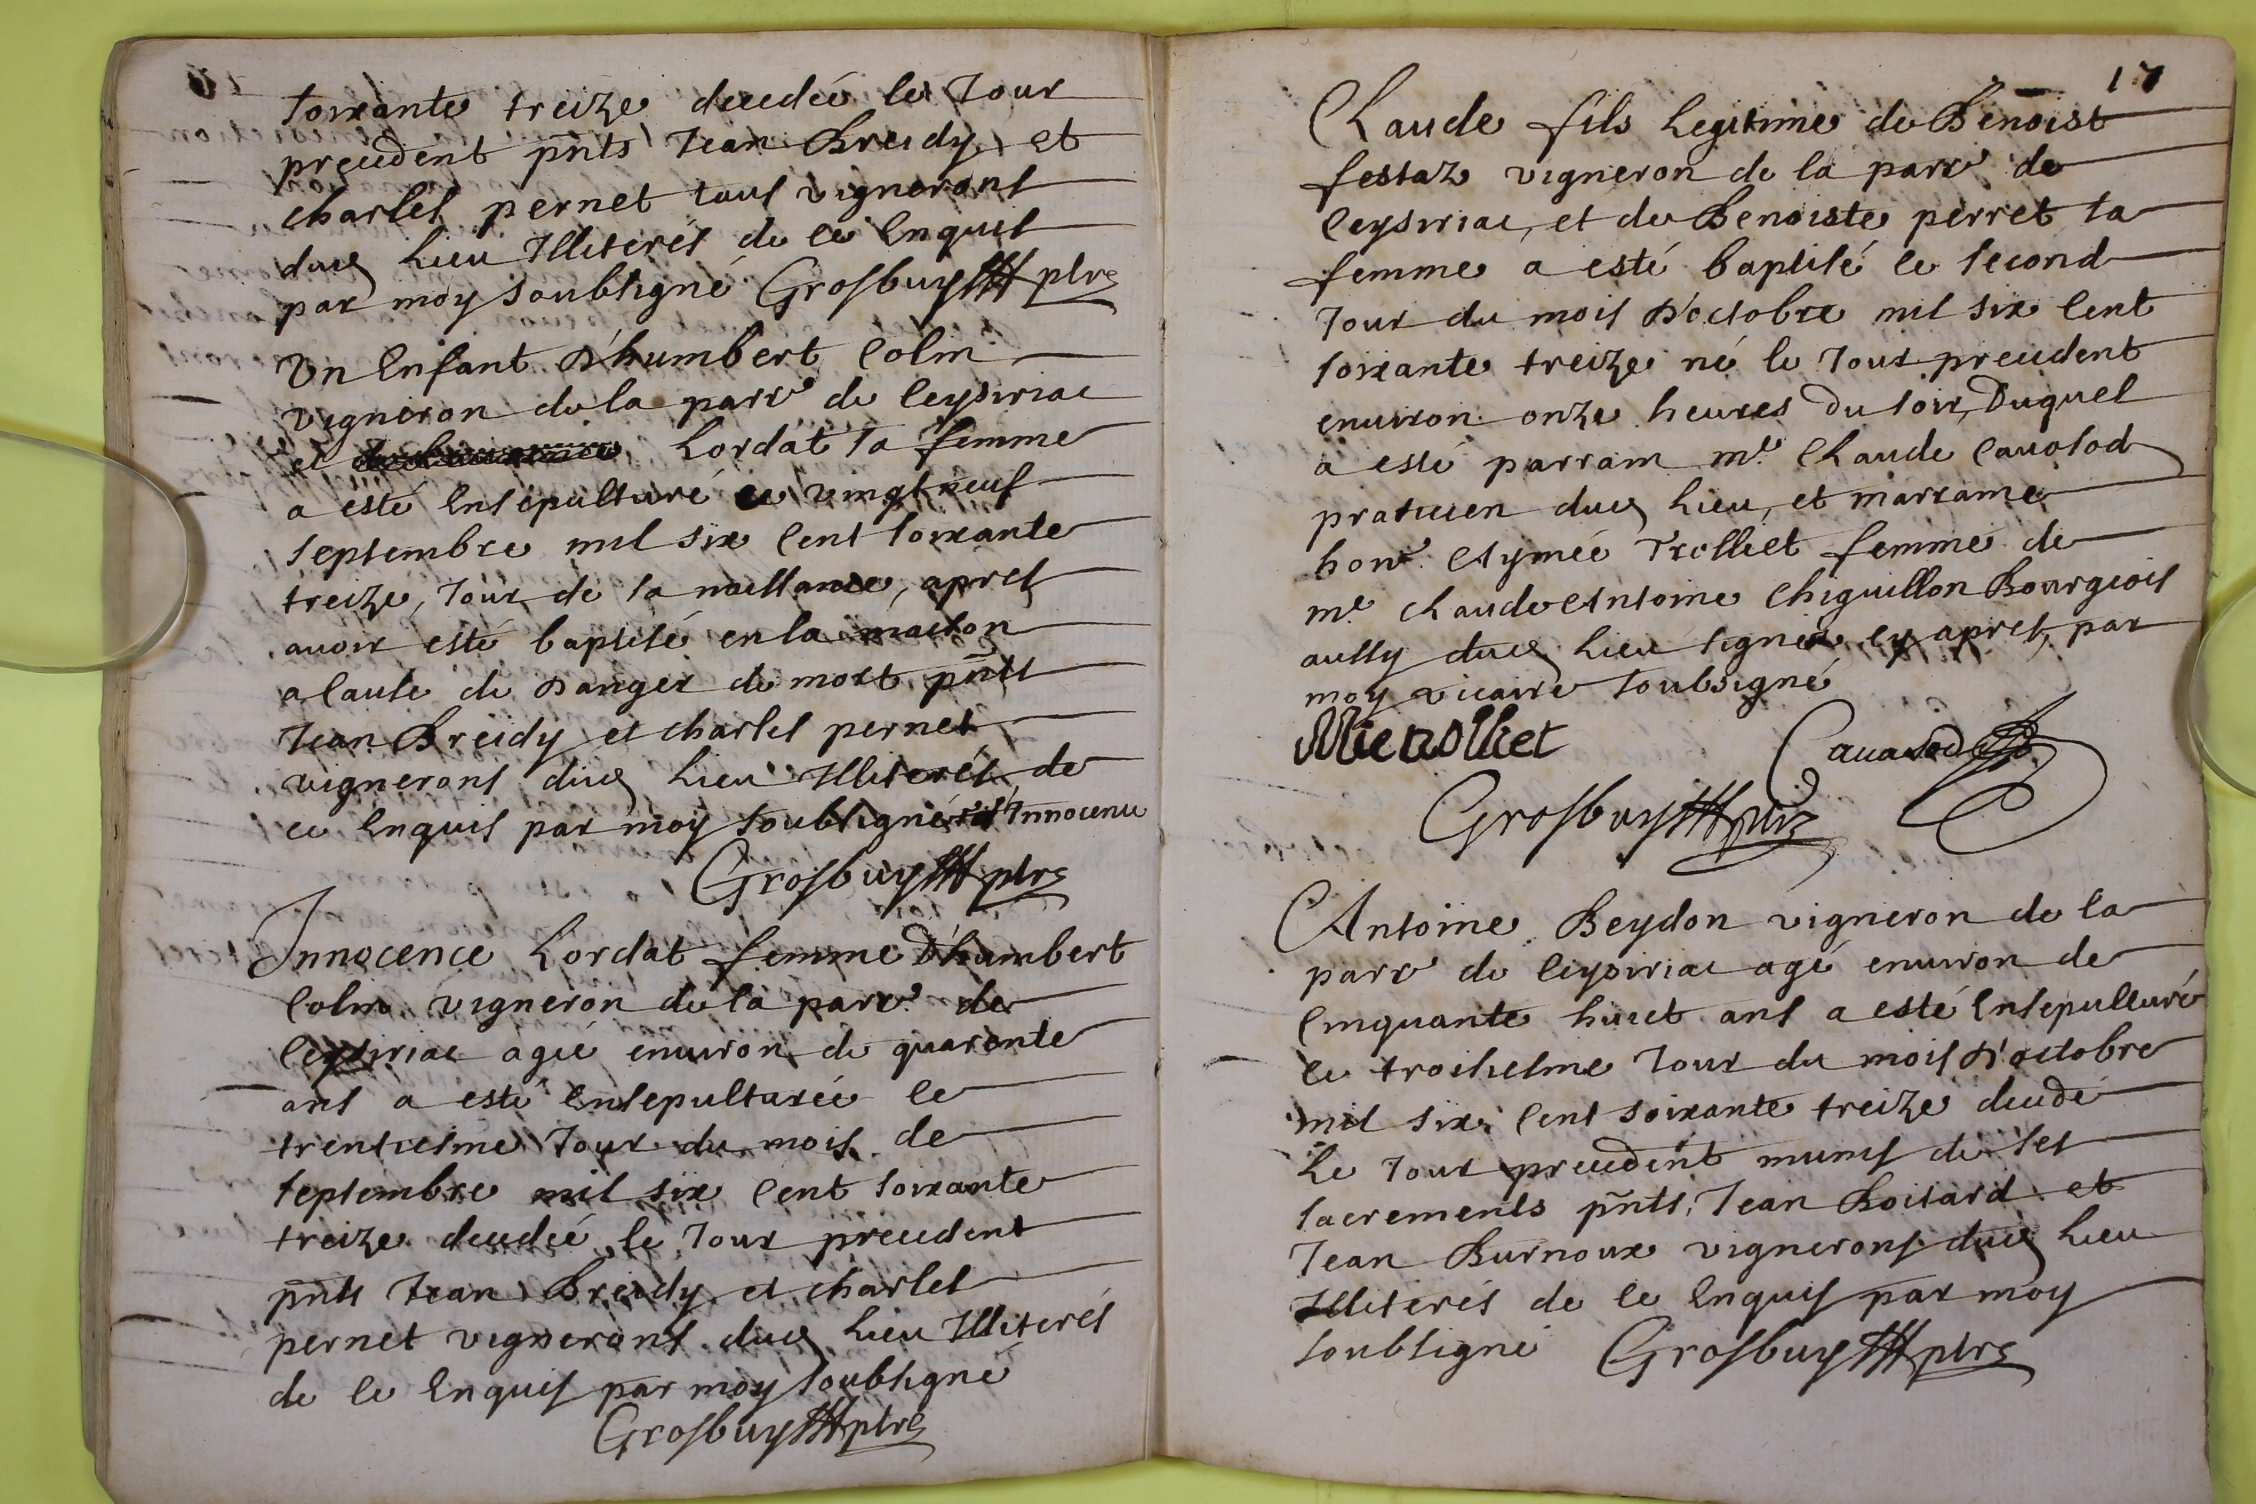 soixante treize decedée le Jour
precedent pñts Jean Breidy et
charles pernet tous vignerons
dud lieu Illiterés de ce Enquis
par moy soubsigné Grosbuy ptre
Un Enfant D'humbert Colin
vigneron de la parr de Ceysiriac
et Lordat sa femme
a esté Ensepulturé ce vingt neuf
septembre mil six Cent soixante
treize, Jour de sa naissance, apres
avoir esté baptisé en la maison
a Cause de Danger de mort pñts
Jean Breidy et charles pernet
vignerons dud lieu Illiterés de
ce Enquis par moy soubsigné Innocence
Grosbuy ptre
Innocence Lordat femme D'humbert
Colin vigneron de la parr de
Ceysiriac agée environ de quarante
ans a esté Ensepulturée le
trentiesme Jour du mois de
septembre mil six Cent soixante
treize decedée le Jour precedent
pñts Jean Breidy et charles
pernet vignerons dud lieu Illiterés
de ce Enquis par moy soubsigné
Grosbuy ptre
17
Claude fils Legitime de Benoist
festaz vigneron de la parr de
Ceysiriac, et de Benoiste perret sa
femme a esté baptisé le second
Jour du mois D'octobre mil six Cent
soixante treize né le Jour precedent
environ onze heures du soir, Duquel
a esté parrain mᵉ Claude Cavosod
praticien dud lieu, et marraine
honᵉ Aymée Trolliet femme de
mᵉ Claude Antoine Chiguillon Bourgeois
aussy dud lieu signés cy apres, par
moy vicaire soubsigné
Cavasod
Grosbuy ptre
Antoine Beydon vigneron de la
parr de Ceysiriac agé environ de
Cinquante huict ans a esté Ensepulturé
le troisiesme Jour du mois D'octobre
mil six Cent soixante treize decedé
Le Jour precedent munis de ses
sacrements pñts, Jean Boisard et
Jean Burnoux vignerons dud lieu
Illiterés de ce Enquis par moy
soubsigné Grosbuy ptre